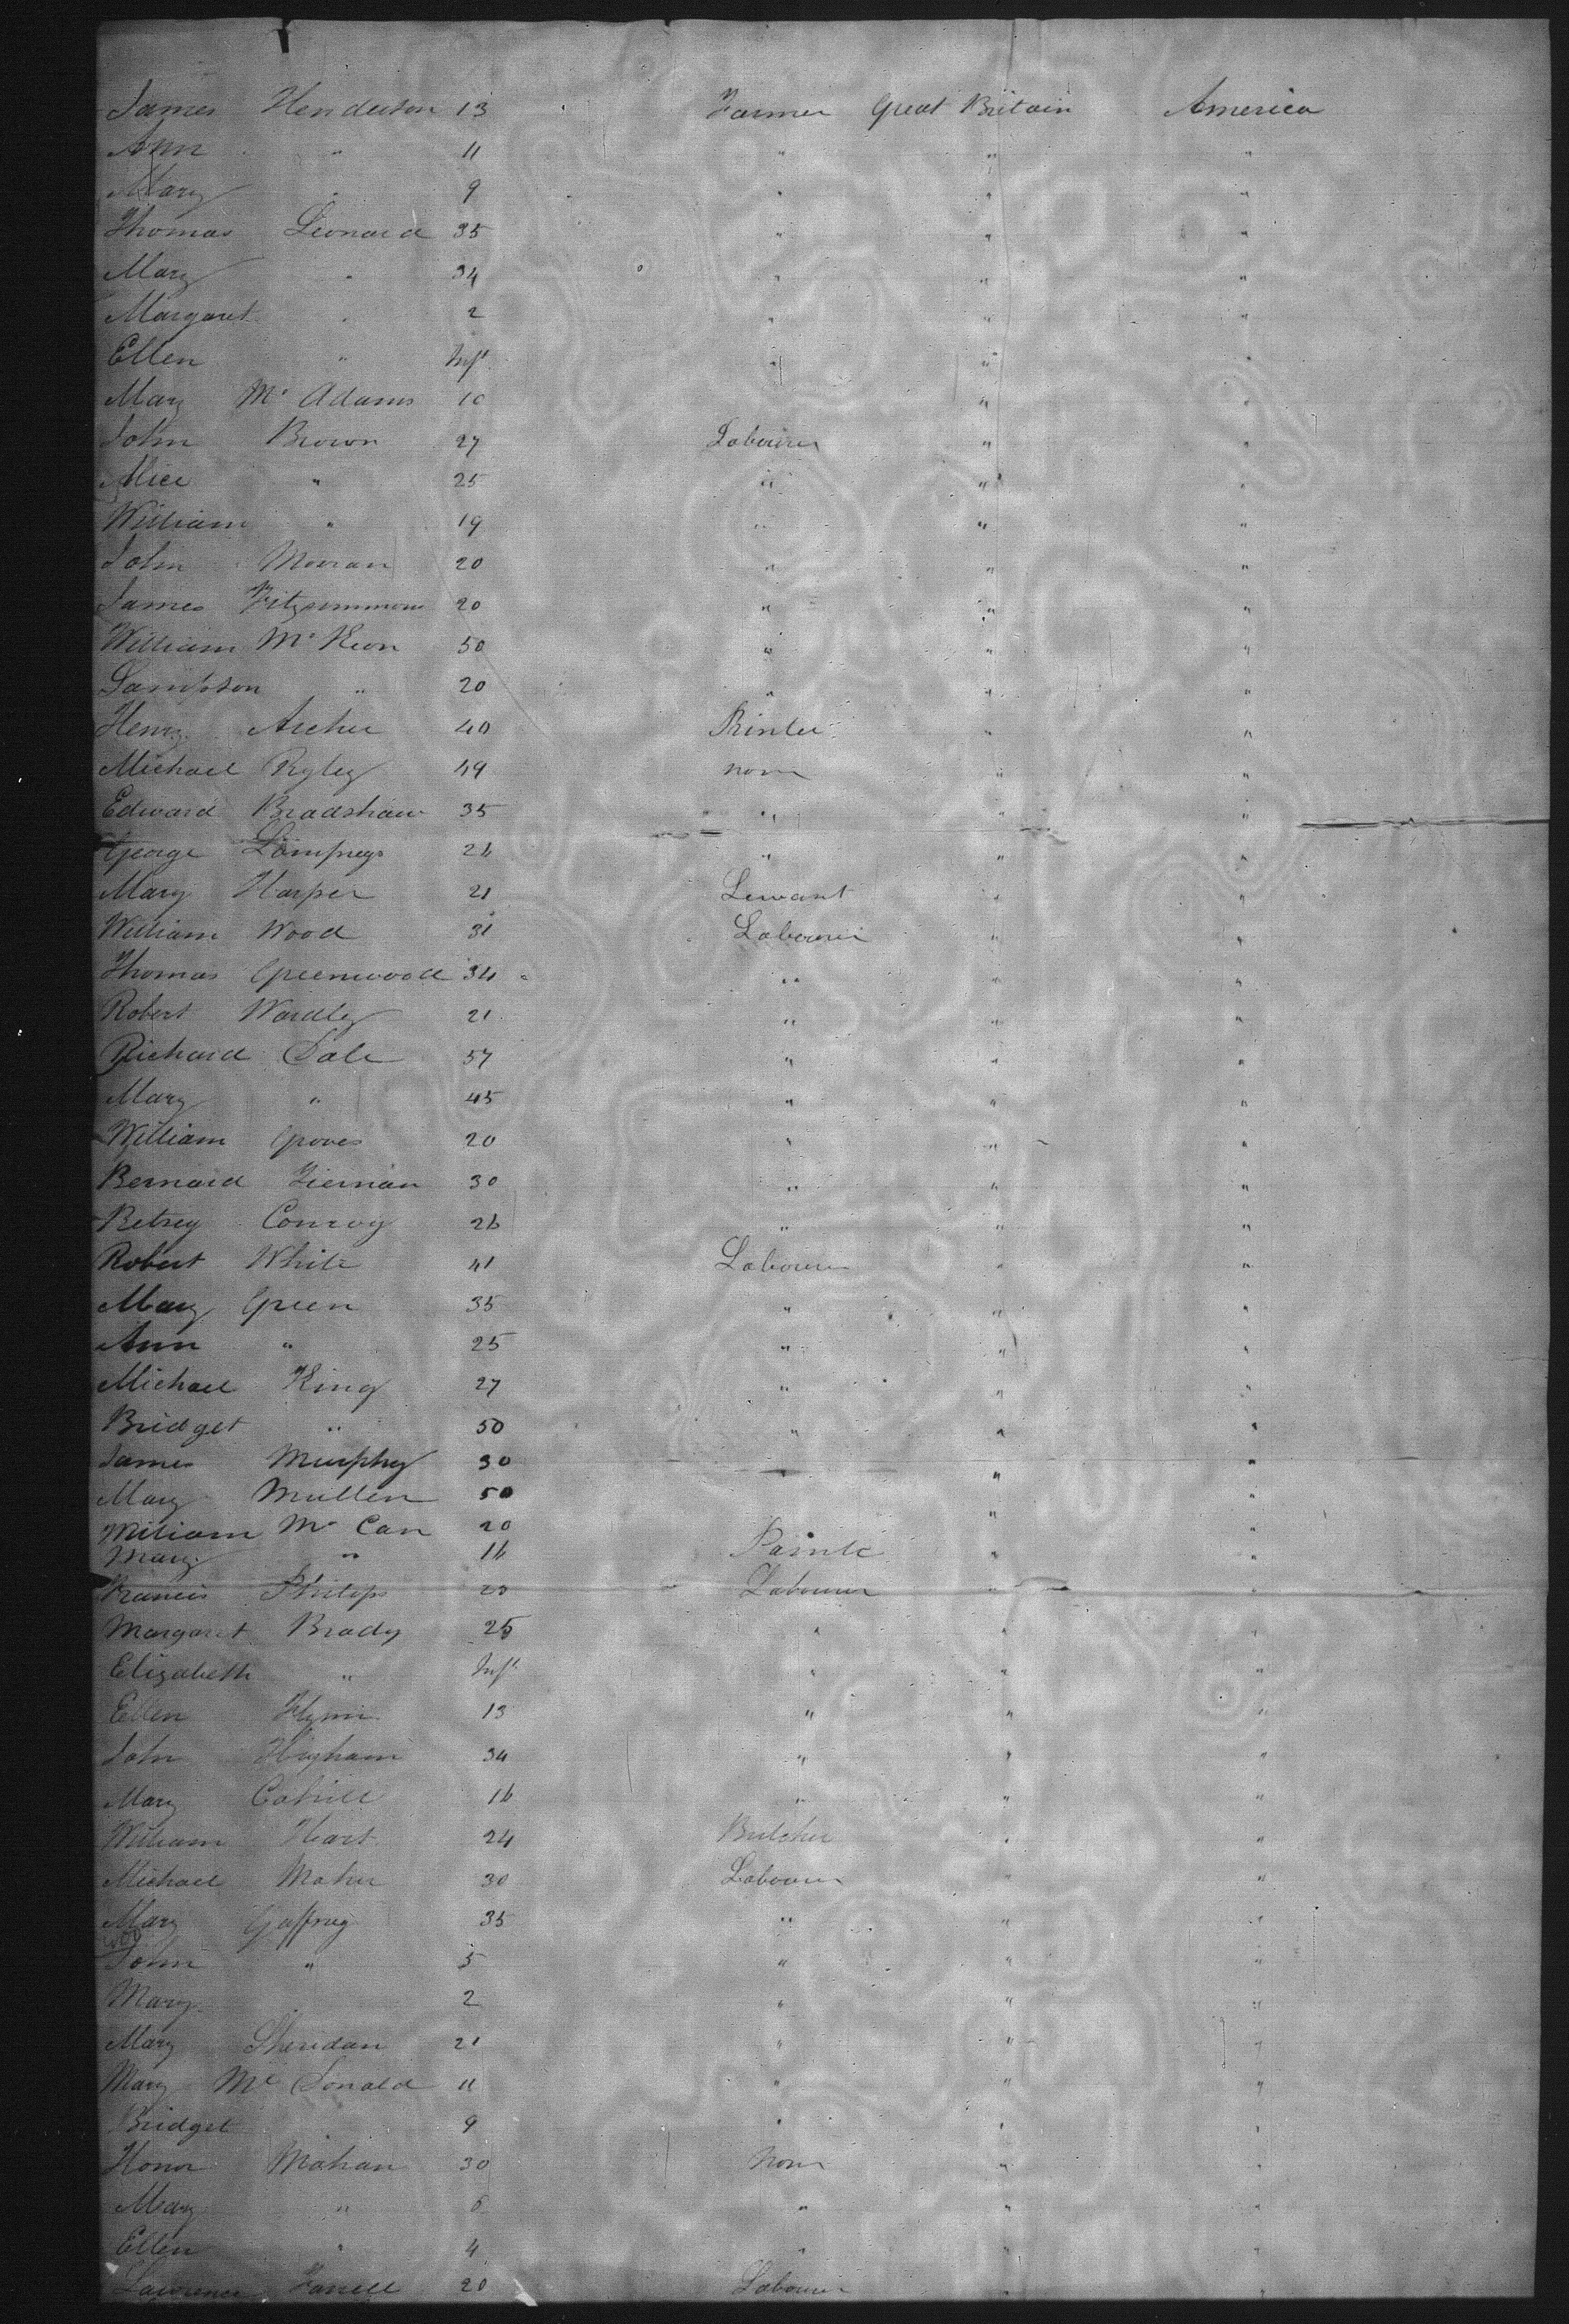 James Henderson 13 Farmer Great Britain America
Ann " 11 " " "
Mary " 9 " " "
Thomas Leonard 35 " " "
Mary " 34 " " "
Margaret " 2 " " "
Ellen " Inft " " "
Mary Mc Adams 10 " "
John Brown 27 Labourer " "
Alice " 25 " " "
William " 19 " " "
John Mooran 20 " " "
James Fitzsimmons 20 " " "
William Mc Keon 50 " " "
Sampson " 20 " " "
Henry Archer 40 Printer " "
Michael Ryley 49 none " "
Edward Bradshaw 35 " " "
George Lampreys 26 " " "
Mary Harper 21 Servant " "
William Wood 31 Labourer " "
Thomas Greenwood 34 " " "
Robert Wardley 21 " " "
Richard Dale 57 " " "
Mary " 45 " " "
William Groves 20 " " "
Bernard Tiernan 30 " " "
Betsey Conroy 26 " " "
Robert White 41 Labourer " "
Mary Green 35 " " "
Ann " 25 " " "
Michael King 27 " " "
Bridget " 50 " " "
James Murphy 30 " " "
Mary Mullen 50 " "
William Mc Can 20 "
Mary " 16 " "
Francis Philips 20 Labourer " "
Margaret Brady 25 " " "
Elizabeth " Inft " " "
Ellen Flynn 13 " " "
John Higham 34 " " "
Mary Cahill 16 " " "
William Hart 24 Butcher " "
Michael Maher 30 Labourer " "
Mary Gaffney 35 " " "
John " 5 " " "
Mary " 2 " " "
Mary Sheridan 21 " " "
Mary Mc Donald 11 " " "
Bridget 9 " " "
Honor Mahan 30 None " "
Mary " 6 " " "
Ellen " 4 " " "
Lawrence Farrell 20 Labourer " "